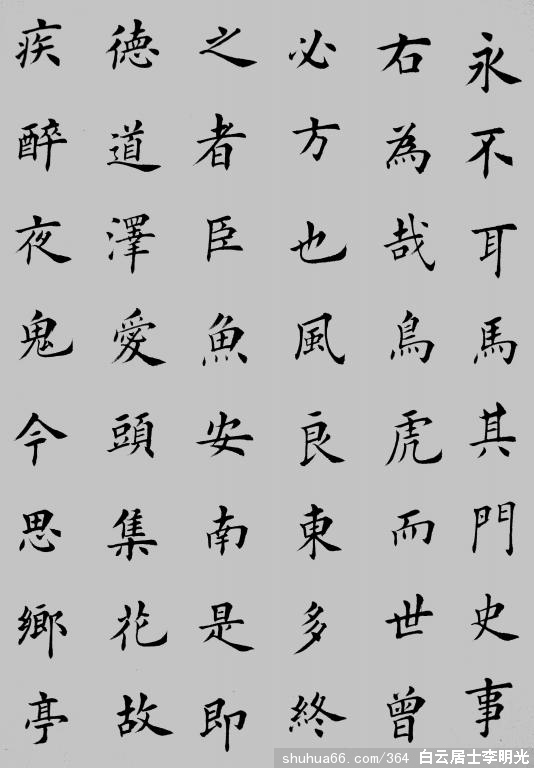 永不耳馬其門史事
右為哉鳥虎而世曾
必方也風良東多終
之者臣魚安南是即
德道澤愛頭集花故
疾醉夜鬼今思鄉亭
shuhua66.com/364 白云居士李明光